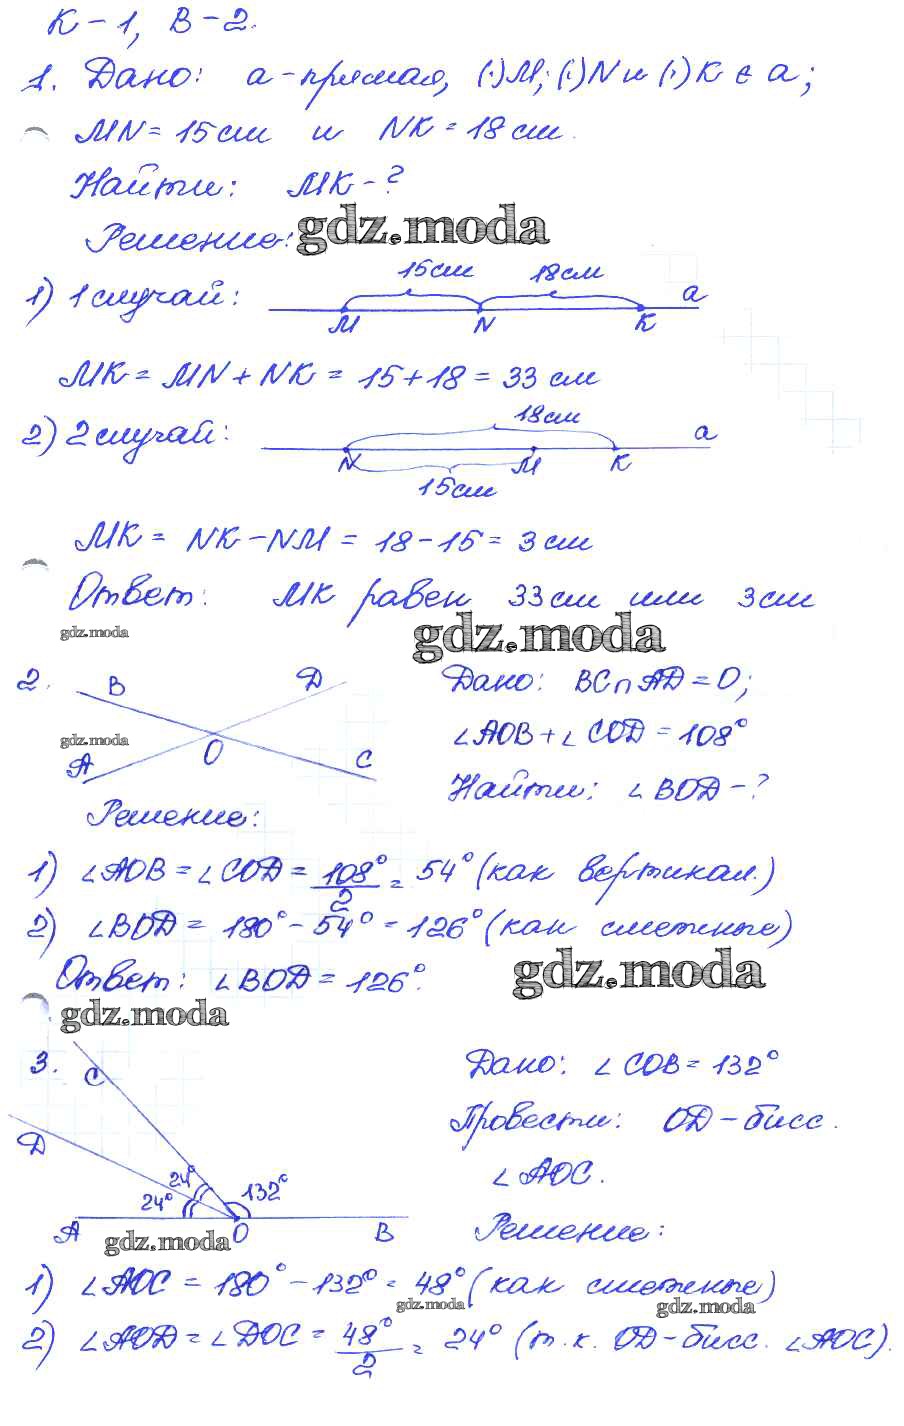 К-1, В-2.
1. Дано: a-прямая, (·)M, (·)N и (·)K ∈ a;
MN = 15см и NK = 18см.
Найти: MK-?
Решение: gdz.moda
15см 18см
1) 1 случай: a
M N K
MK = MN + NK = 15+18 = 33 см
18см
2) 2 случай: a
N M K
15см
MK = NK - NM = 18-15 = 3 см
Ответ: MK равен 33см или 3см
gdz.moda gdz.moda
2. B D Дано: BC∩AD = O;
gdz.moda O C ∠AOB + ∠COD = 108°
A Найти: ∠BOD-?
Решение:
1) ∠AOB = ∠COD = 108°/2 = 54° (как вертикал.)
2) ∠BOD = 180° - 54° = 126° (как смежные)
Ответ: ∠BOD = 126°. gdz.moda
gdz.moda
3. C Дано: ∠COB = 132°
D Провести: OD-бисс.
24° 24° 132° ∠AOC.
A O B Решение:
gdz.moda
1) ∠AOC = 180° - 132° = 48° (как смежные)
gdz.moda gdz.moda
2) ∠AOD = ∠DOC = 48°/2 = 24° (т.к. OD-бисс. ∠AOC).